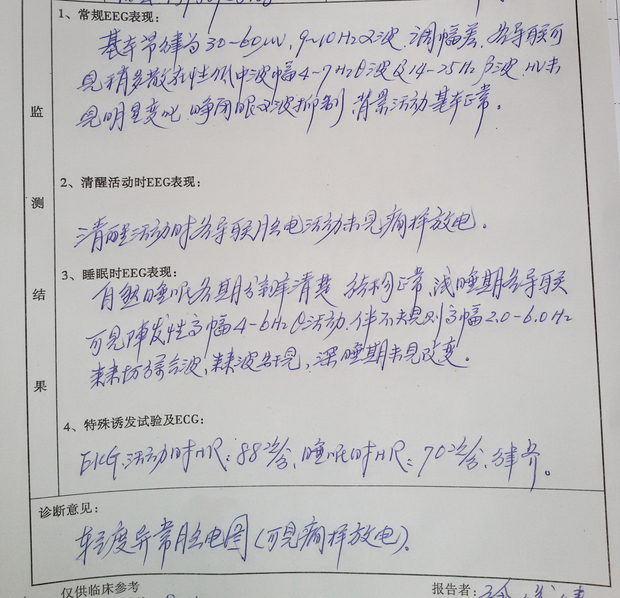 1、常规EEG表现：
基本节律为30-60uv，9-10Hzα波，调幅差，各导联可
见稍多散在性低中波幅4-7Hzθ波及14-25Hzβ波，HV未
见明显变化，睁闭眼α波抑制，背景活动基本正常。
监
2、清醒活动时EEG表现：
测
清醒活动时各导联脑电活动未见痫样放电。
结
3、睡眠时EEG表现：
自然睡眠各期分辨率清楚，结构正常，浅睡期各导联
可见阵发性高幅4-6Hzθ活动，伴不规则高幅2.0-6.0Hz
棘慢综合波，棘波各见，深睡期未见改变。
果
4、特殊诱发试验及ECG：
EKG：活动时HR：88次/分，睡眠时HR：70次/分，律齐。
诊断意见：
轻度异常脑电图(可见痫样放电)。
仅供临床参考
报告者：